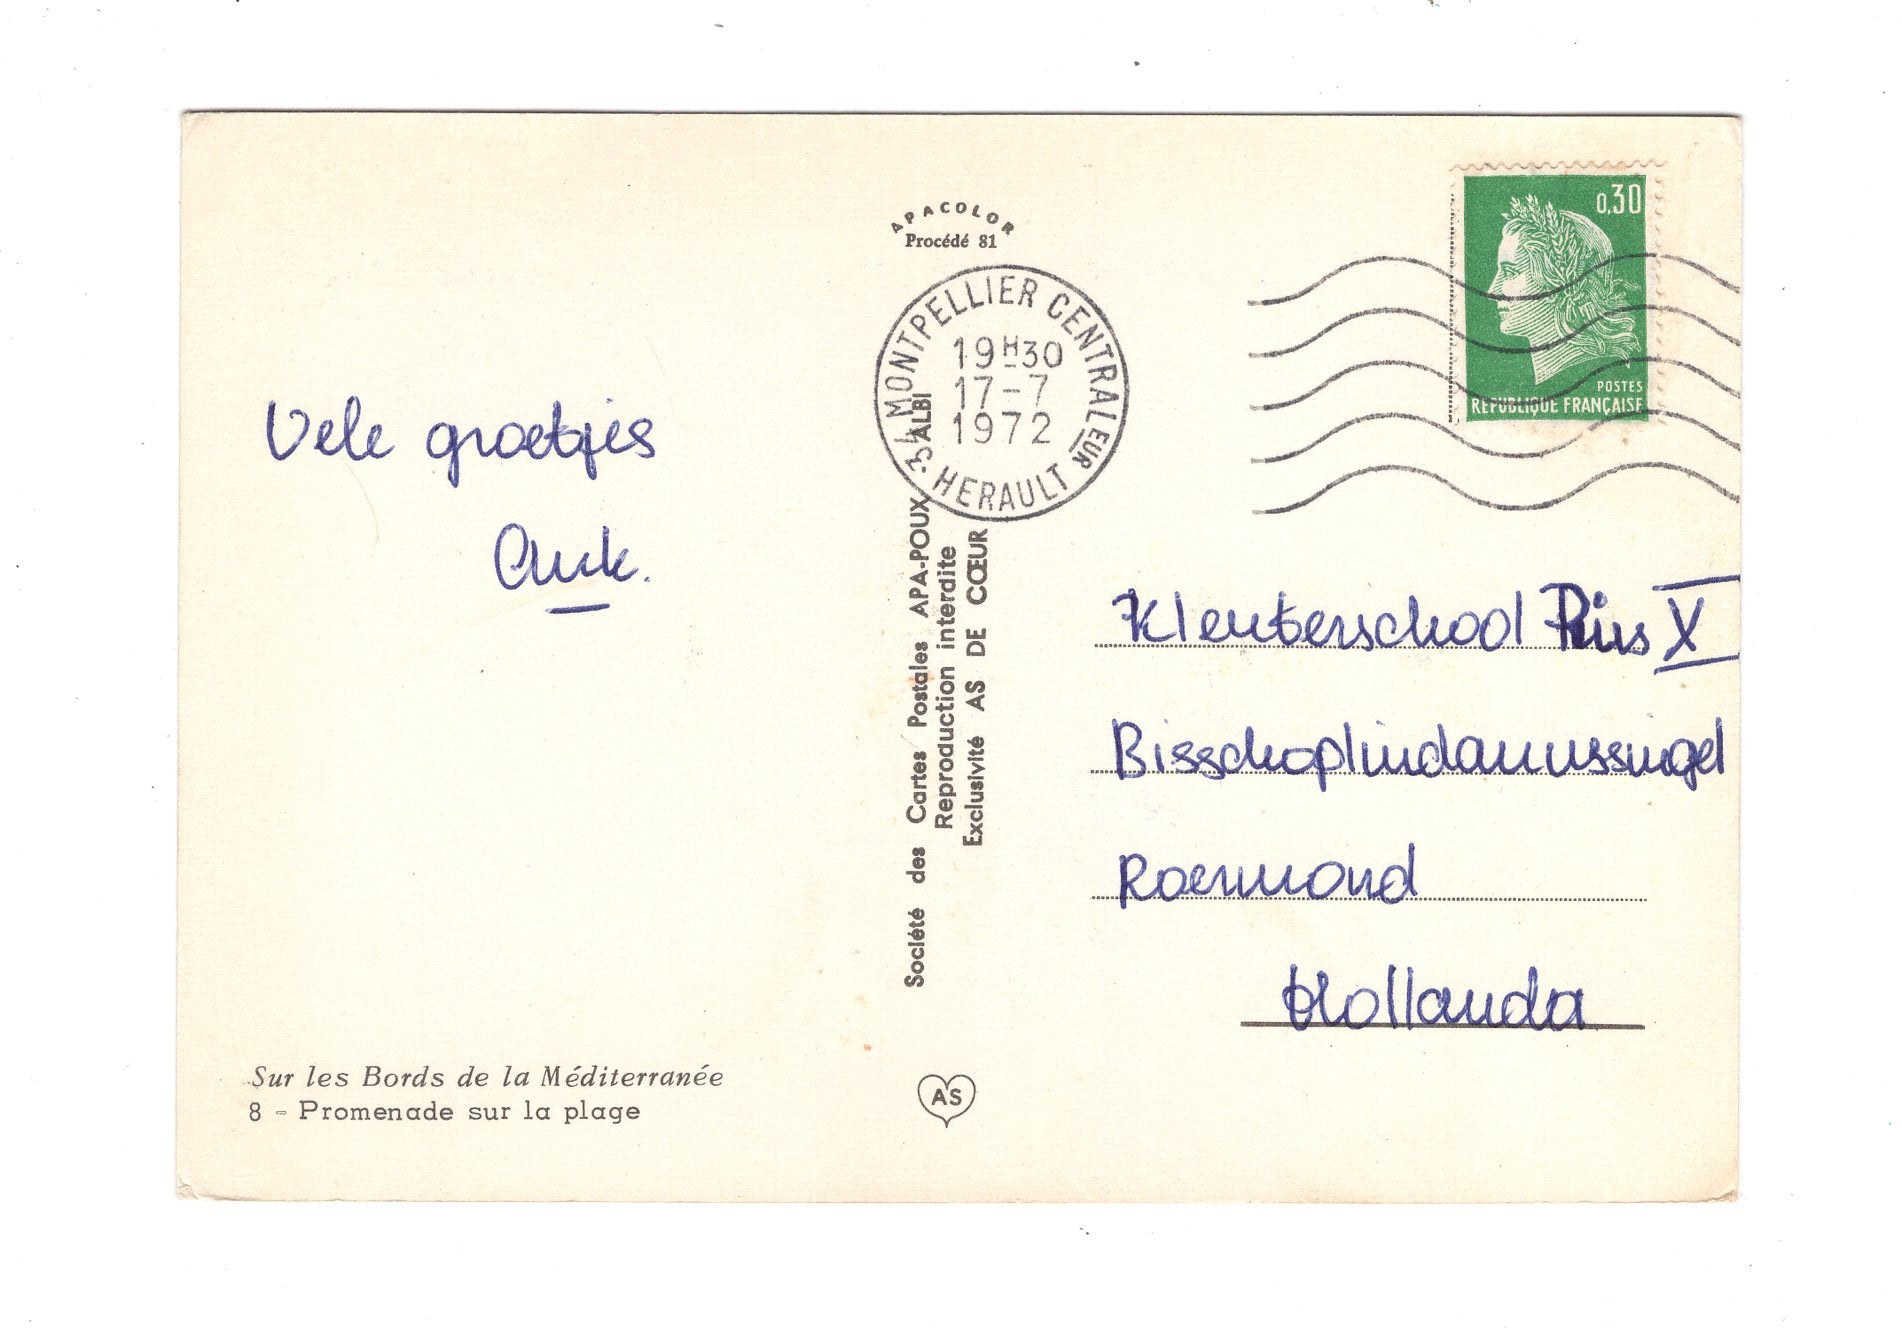 APACOLOR
Procédé 81
0,30
POSTES
RÉPUBLIQUE FRANÇAISE
34 MONTPELLIER CENTRALEUR
19H30
17-7
1972
HERAULT
Vele groetjes
Société des Cartes Postales APA-POUX ALBI
Reproduction interdite
Exclusivité AS DE CŒUR
Kleuterschool Pius X
Bisschoplindanussingel
Roermond
Hollanda
Sur les Bords de la Méditerranée
8 - Promenade sur la plage
AS